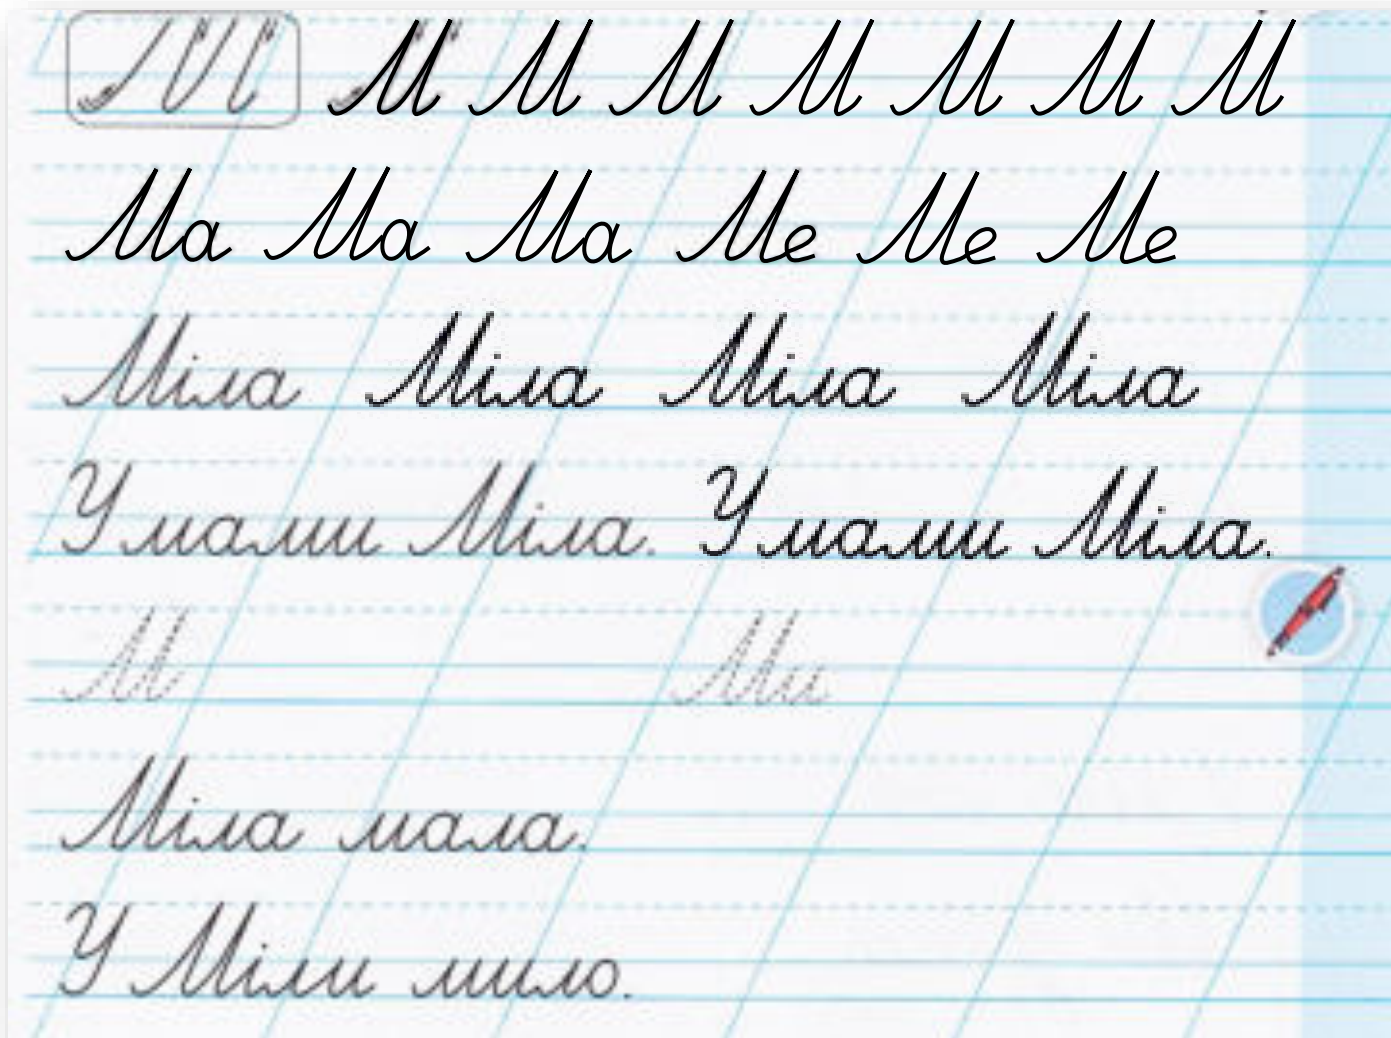 М М М М М М М М
Ма Ма Ма Ме Ме Ме
Міла Міла Міла Міла
У мами Міла. У мами Міла.
М Ми
Міла мала.
У Міли мило.